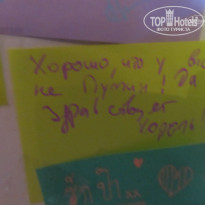 TOP Hotels
ФОТО ТУРИСТА
Хорошо, что у вас
не Путин! Да
здравствует
король!